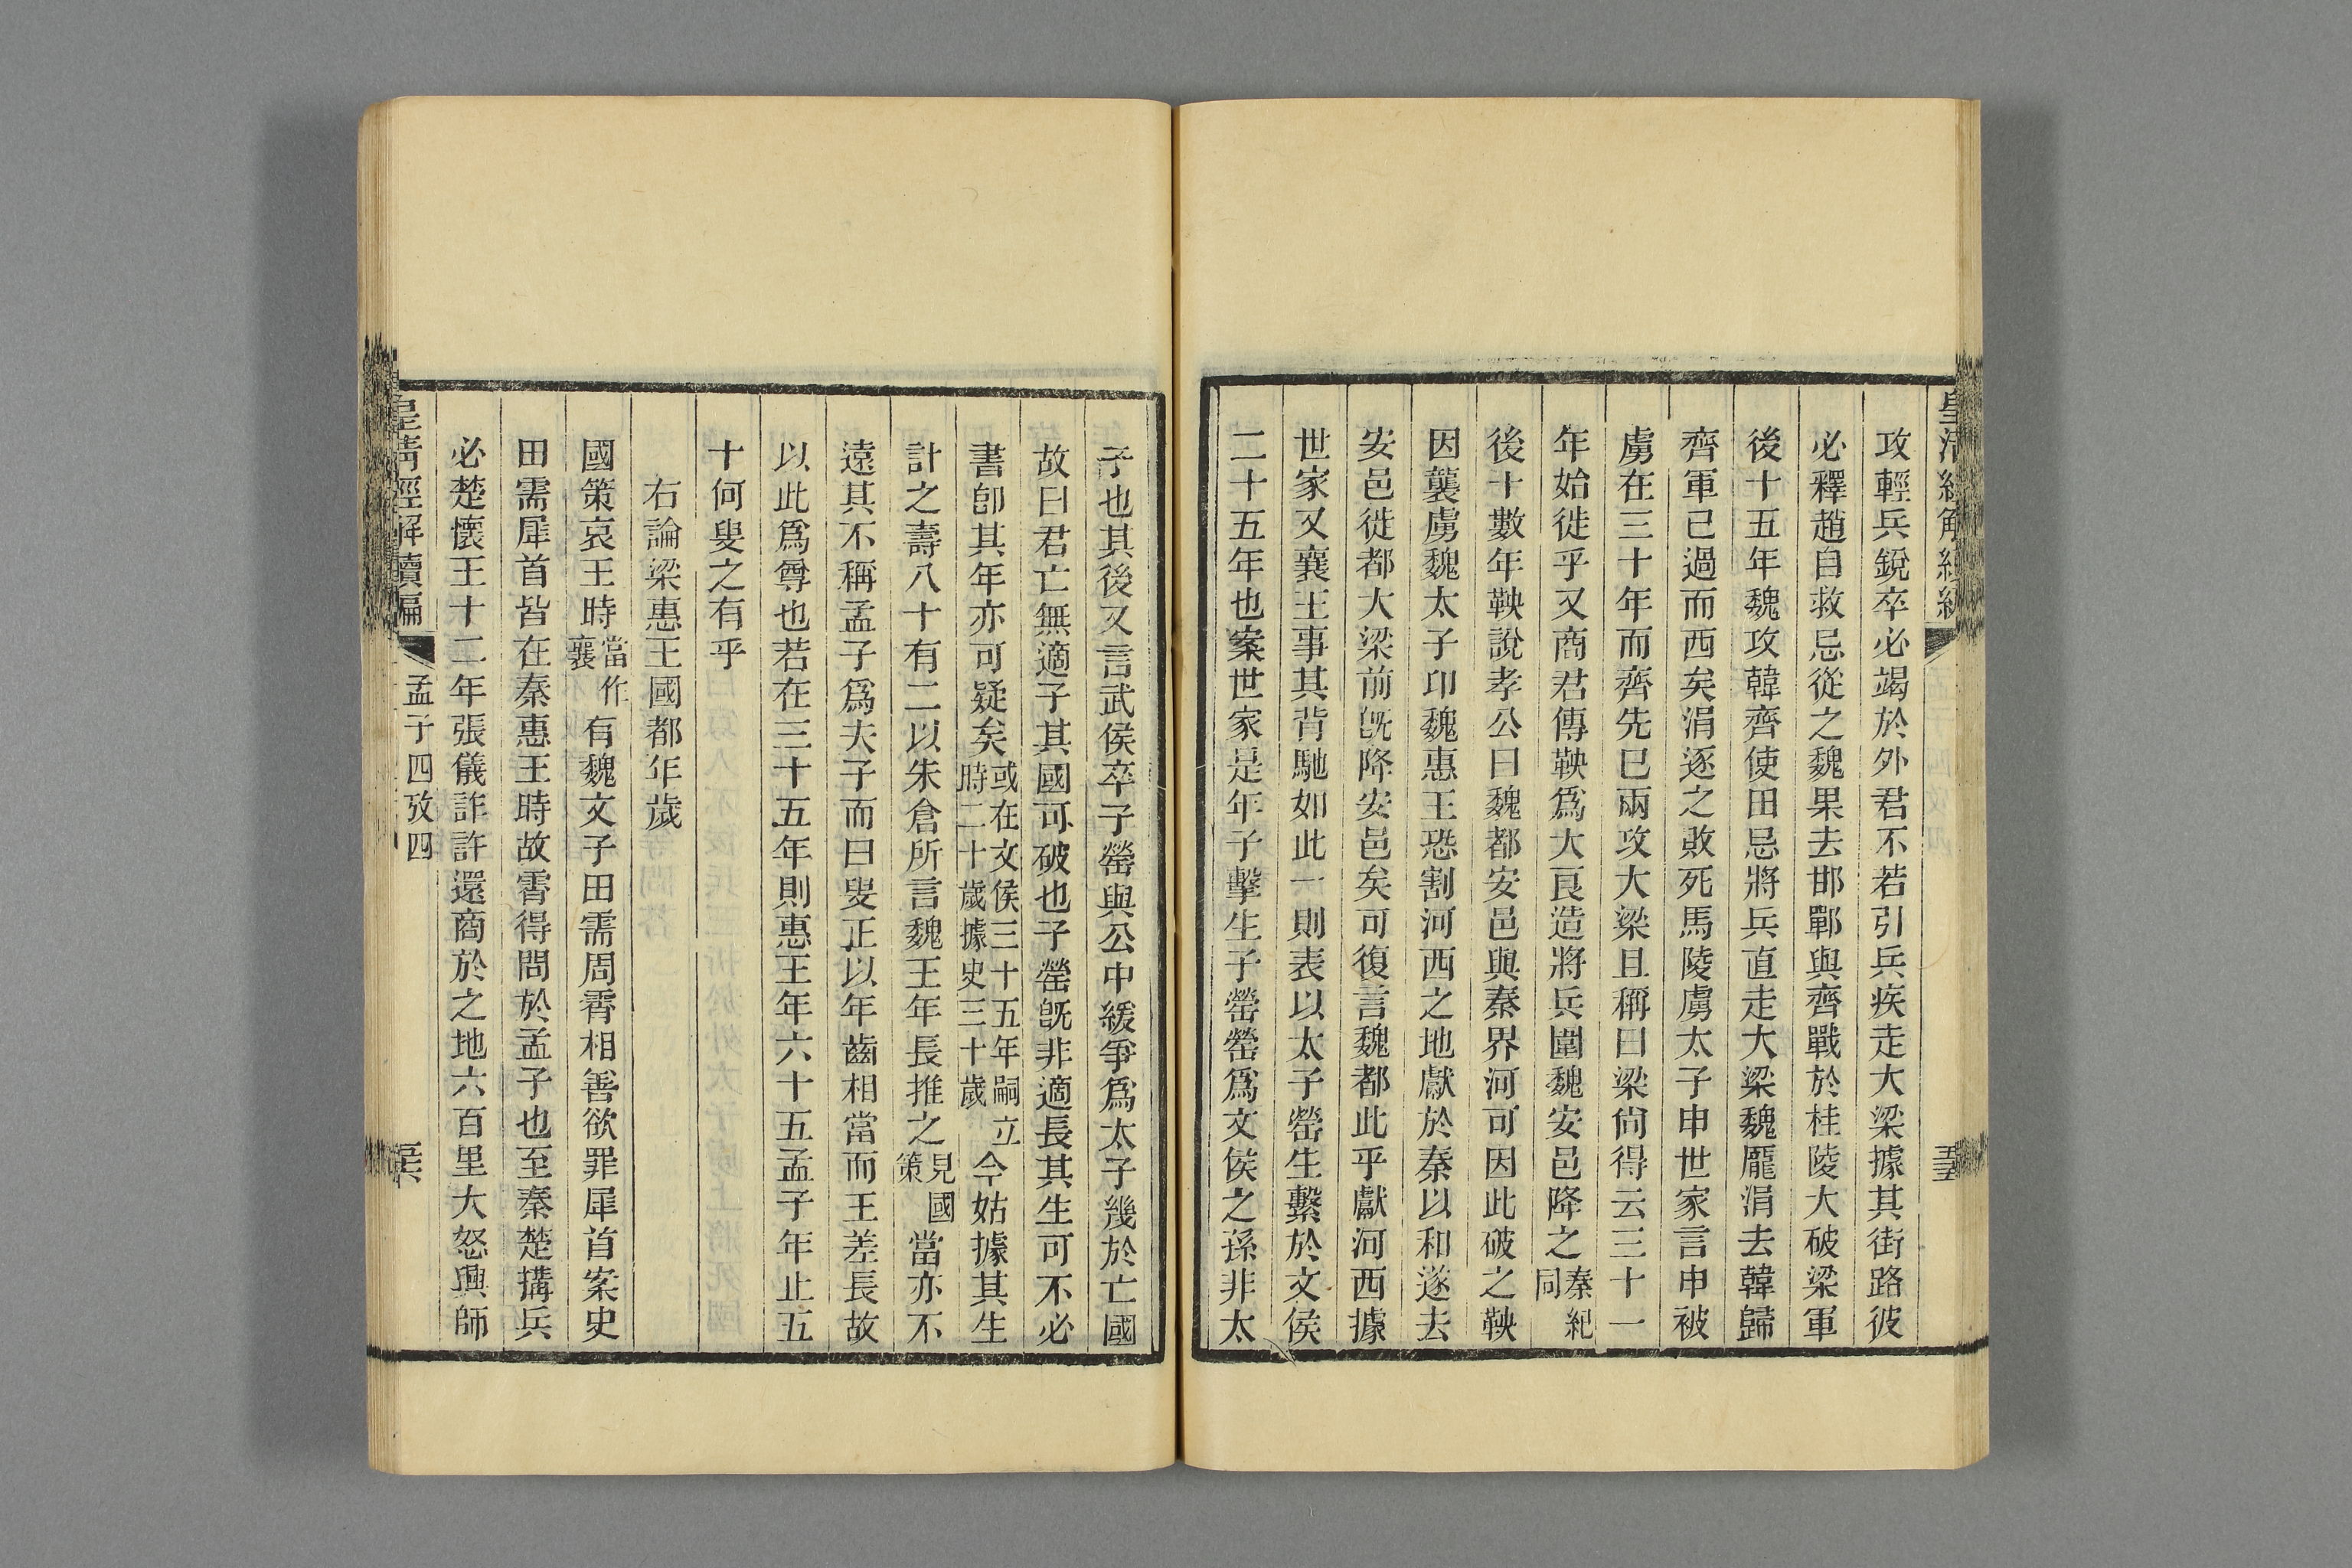 攻輕兵銳卒必竭於外君不若引兵疾走大梁據其街路彼
必釋趙自救忌從之魏果去邯鄲與齊戰於桂陵大破梁軍
後十五年魏攻韓齊使田忌將兵直走大梁魏龐涓去韓歸
齊軍已過而西矣涓逐之敗死馬陵虜太子申世家言申被
虜在三十年而齊先巳兩攻大梁且稱曰梁尙得云三十一
年始徙乎又商君傳鞅爲大良造將兵圍魏安邑降之秦紀同
後十數年鞅說孝公曰魏都安邑與秦界河可因此破之鞅
因襲虜魏太子卬魏惠王恐割河西之地獻於秦以和遂去
安邑徙都大梁前旣降安邑矣可復言魏都此乎獻河西據
世家又襄王事其背馳如此一則表以太子罃生繫於文侯
二十五年也案世家是年子擊生子罃罃爲文侯之孫非太
子也其後又言武侯卒子罃與公中緩爭爲太子幾於亡國
故曰君亡無適子其國可破也子罃旣非適長其生可不必
書卽其年亦可疑矣或在文侯三十五年嗣立時二十歲據史三十歲今姑據其生
計之壽八十有二以朱倉所言魏王年長推之見國策當亦不
遠其不稱孟子爲夫子而曰叟正以年齒相當而王差長故
以此爲尊也若在三十五年則惠王年六十五孟子年止五
十何叟之有乎
右論梁惠王國都年歲
國策哀王時當作襄有魏文子田需周霄相善欲罪犀首案史
田需犀首皆在秦惠王時故霄得問於孟子也至秦楚搆兵
必楚懷王十二年張儀詐許還商於之地六百里大怒興師
皇清經解續編
孟子四攷四